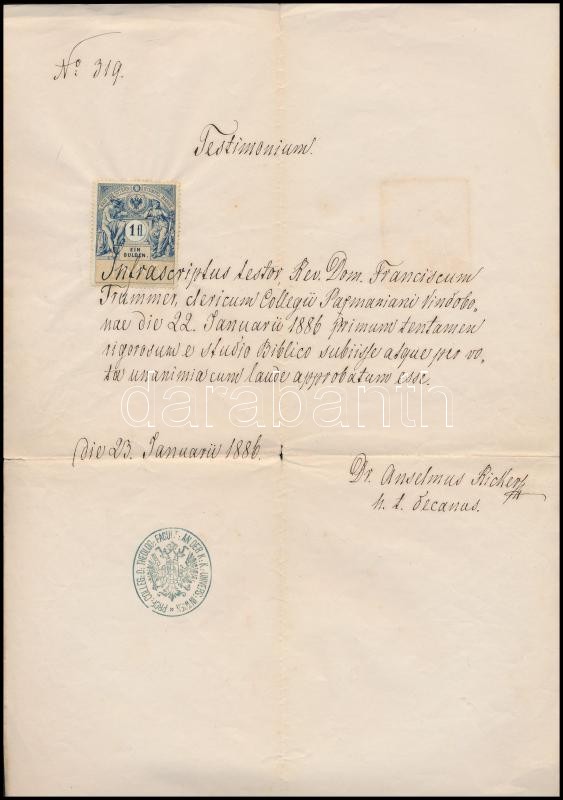 No. 319.
Testimonium.
1 fl
EIN
GULDEN.
Infrascriptus testor, Rev. Dom. Franciscum
Trammer, clericum Collegii Pazmaniani Vindobo-
nae die 22. Januarii 1886 primum tentamen
rigorosum e studio Biblico subiisse atque per vo-
ta unanimia cum laude approbatum esse.
darabanth
die 23. Januarii 1886.
Dr. Anselmus Ricker
h. t. decanus.
PROF: COLLEG: D: THEOLOG: FACULT: AN DER K: K: UNIVERS: IN WIEN